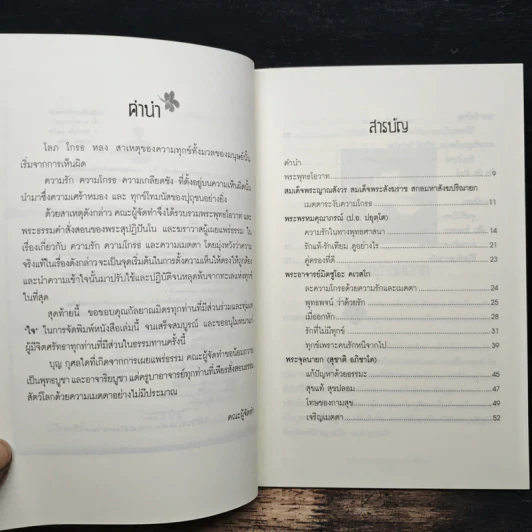 คำนำ
โลภ โกรธ หลง สาเหตุของความทุกข์ทั้งมวลของมนุษย์นั้น
เริ่มจากการเห็นผิด
ความรัก ความโกรธ ความเกลียดชัง ที่ตั้งอยู่บนความเห็นผิดนั้น
นำมาซึ่งความเศร้าหมอง และ ทุกข์โทมนัสของปุถุชนอย่างยิ่ง
ด้วยสาเหตุดังกล่าว คณะผู้จัดทำจึงได้รวบรวมพระพุทธโอวาท และ
พระธรรมคำสั่งสอนของพระสุปฏิปันโน และฆราวาสผู้เผยแพร่ธรรม ใน
เรื่องเกี่ยวกับ ความรัก ความโกรธ และความเมตตา โดยมุ่งหวังว่าความ
จริงแท้ในเรื่องดังกล่าวจะเป็นจุดเริ่มต้นในการตั้งความเห็นให้ตรงให้ถูกต้อง
และนำความเข้าใจนั้นมาปรับใช้และปฏิบัติจนหลุดพ้นจากทะเลแห่งทุกข์
ในที่สุด
สุดท้ายนี้ ขอขอบคุณกัลยาณมิตรทุกท่านที่มีส่วนร่วมและทุ่มเท
"ใจ" ในการจัดพิมพ์หนังสือเล่มนี้ จนเสร็จสมบูรณ์ และขออนุโมทนาแก่
ผู้มีจิตศรัทธาทุกท่านที่มีส่วนในธรรมทานครั้งนี้
บุญ กุศลใดที่เกิดจากการเผยแพร่ธรรม คณะผู้จัดทำขอน้อมถวาย
เป็นพุทธบูชา และอาจาริยบูชา แด่ครูบาอาจารย์ทุกท่านที่เพียรสั่งสอนธรรม
สัตว์โลกด้วยความเมตตาอย่างไม่มีประมาณ
คณะผู้จัดทำ
สารบัญ
คำนำ
พระพุทธโอวาท 9
สมเด็จพระญาณสังวร สมเด็จพระสังฆราช สกลมหาสังฆปริณายก
เมตตาระงับความโกรธ 11
พระพรหมคุณาภรณ์ (ป.อ. ปยุตโต)
ความรักในทางพุทธศาสนา 14
รักแท้-รักเทียม ดูอย่างไร 21
คู่ครองที่ดี 23
พระอาจารย์มิตซูโอะ คเวสโก
ละความโกรธด้วยความรักและเมตตา 24
พุทธพจน์ ว่าด้วยรัก 25
เมื่ออกหัก 28
รักที่ไม่มีทุกข์ 31
ทุกข์เพราะคนรักหนีจากไป 39
พระจุลนายก (สุชาติ อภิชาโต)
แก้ปัญหาด้วยธรรมะ 45
สุขแท้ สุขปลอม 47
โทษของกามสุข 49
เจริญเมตตา 52